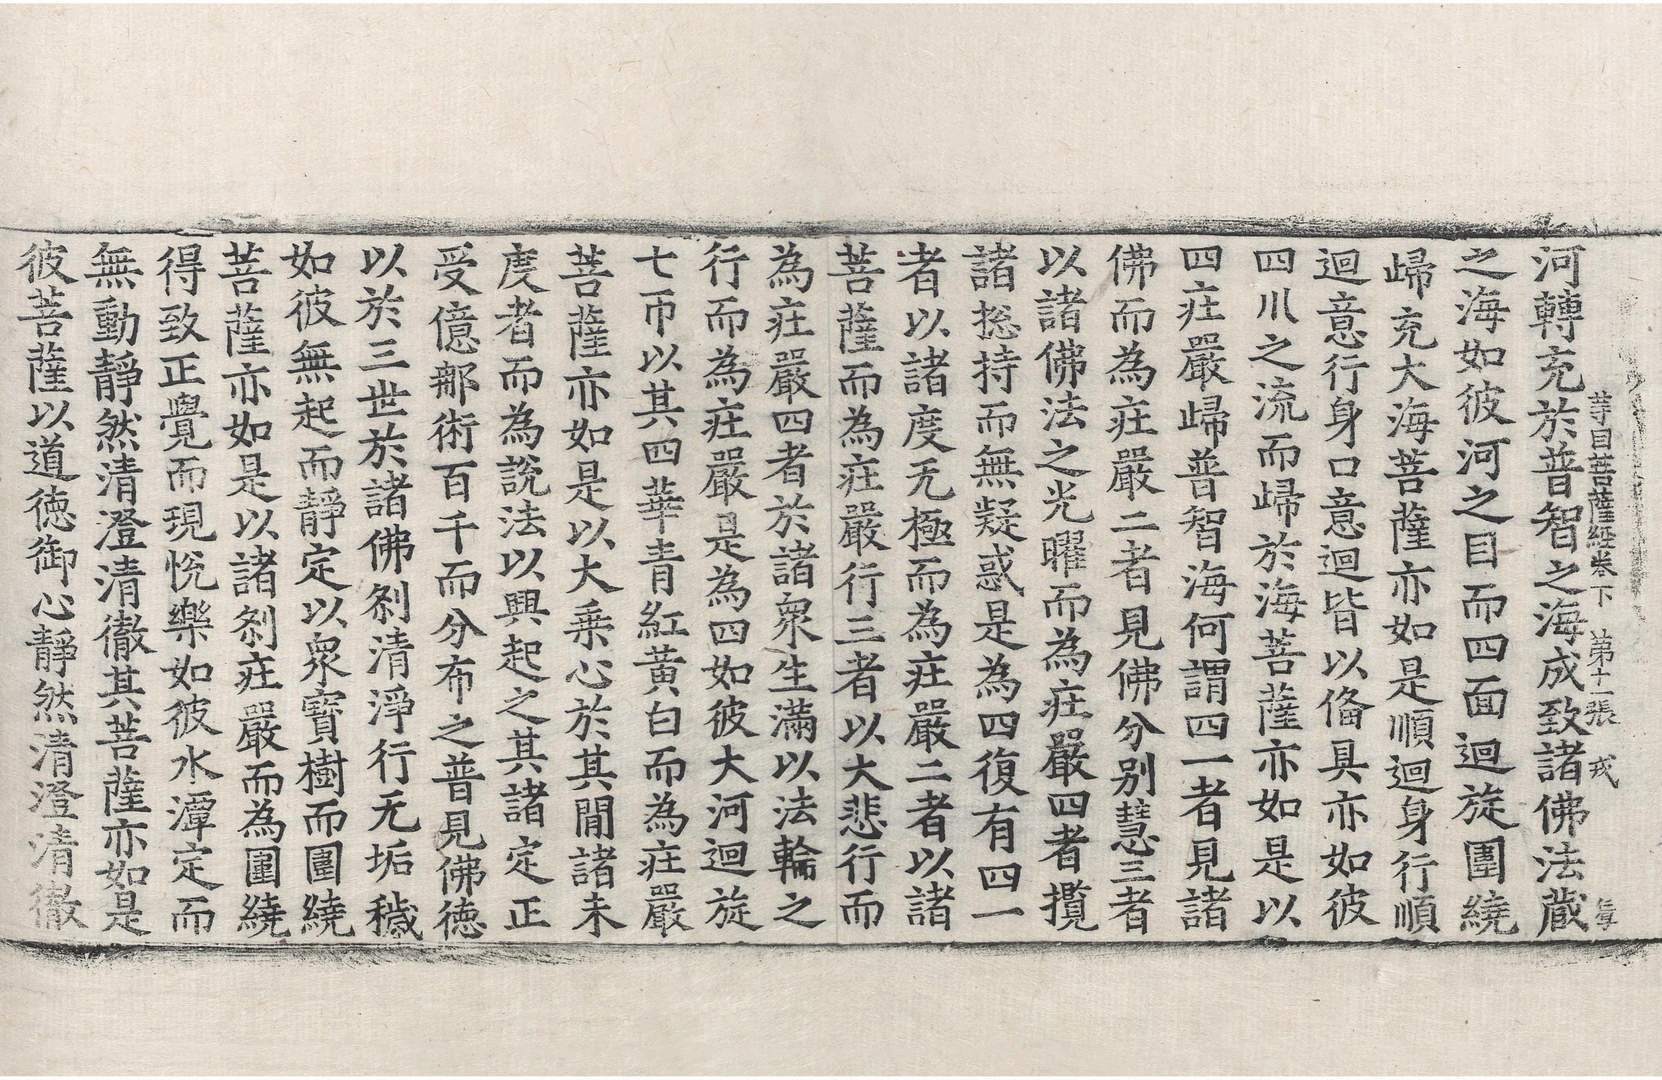 等目菩薩經卷下　第十一張　戎
河轉充於普智之海成致諸佛法藏
之海如彼河之目而四面迴旋圍繞
歸充大海菩薩亦如是順迴身行順
迴意行身口意迴皆以俻具亦如彼
四川之流而歸於海菩薩亦如是以
四庄嚴歸普智海何謂四一者見諸
佛而為庄嚴二者見佛分別慧三者
以諸佛法之光曜而為庄嚴四者攬
諸捴持而無疑惑是為四復有四一
者以諸度无極而為庄嚴二者以諸
菩薩而為庄嚴行三者以大悲行而
為庄嚴四者於諸衆生滿以法輪之
行而為庄嚴是為四如彼大河迴旋
七帀以其四華青紅黃白而為庄嚴
菩薩亦如是以大乘心於其閒諸未
度者而為說法以興起之其諸定正
受億鄰術百千而分布之普見佛德
以於三世於諸佛刹清淨行无垢穢
如彼無起而靜定以衆寶樹而圍繞
菩薩亦如是以諸刹庄嚴而為圍繞
得致正覺而現悅樂如彼水潭定而
無動靜然清澄清徹其菩薩亦如是
彼菩薩以道德御心靜然清澄清徹